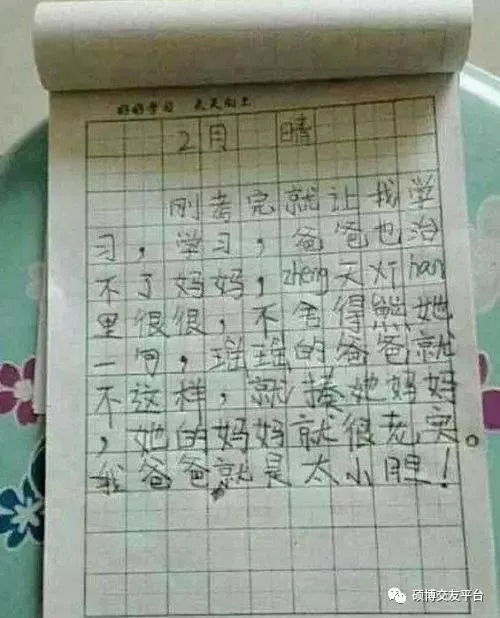 好好学习 天天向上
2月 晴
刚考完就让我学
习，学习，爸爸也治
不了妈妈，zheng天灯han
里很很，不舍得熊她
一句，瑶瑶的爸爸就
不这样，就揍她妈妈
，她的妈妈就很老实。
我爸爸就是太小胆！
硕博交友平台